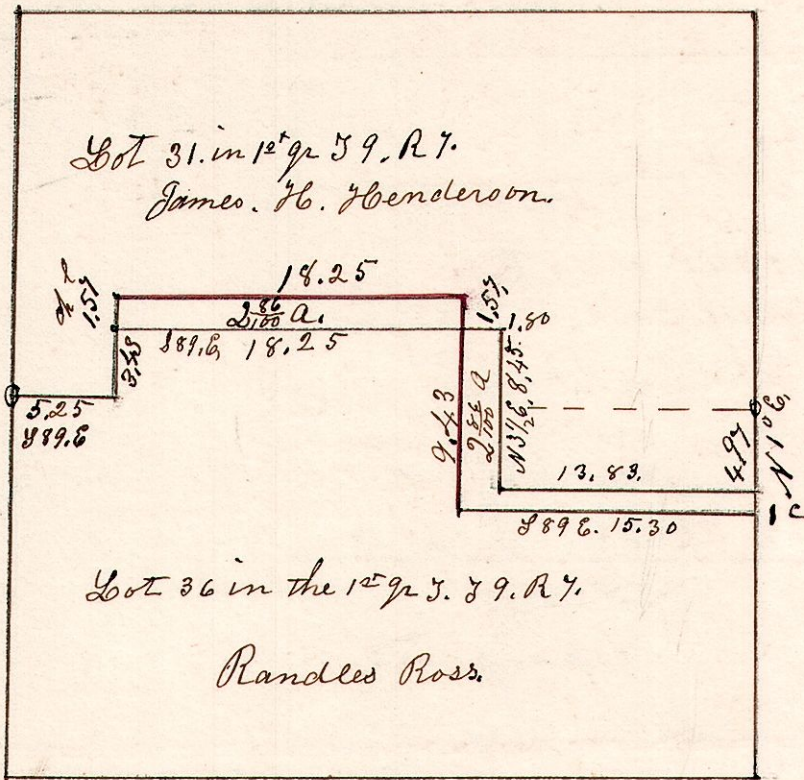 Lot 31. in 1st qr T 9. R 7.
James. H. Henderson.
18.25
1.57
1.57
2 86/100 a.
1.80
S89.E, 18.25
3.43
5.25
S89.E
9.43
2 86/100 a
N3½E. 8,45.
13.83.
4.97
N1°E,
S89E. 15.30
1 C
Lot 36 in the 1st qr T. T9. R7.
Randles Ross.